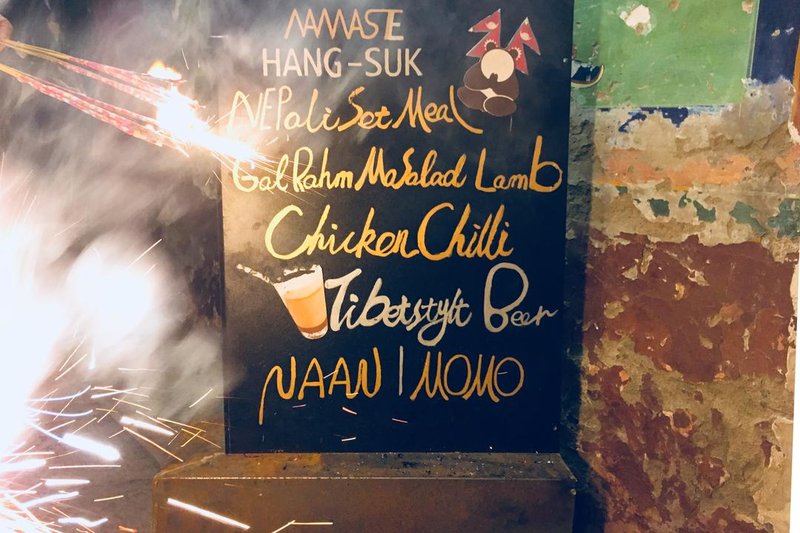 NAMASTE
HANG-SUK
NEPali Set Meal
Gal Rahm MaSalad Lamb
Chicken Chilli
Tibetstylt Beer
NAAN | MOMO